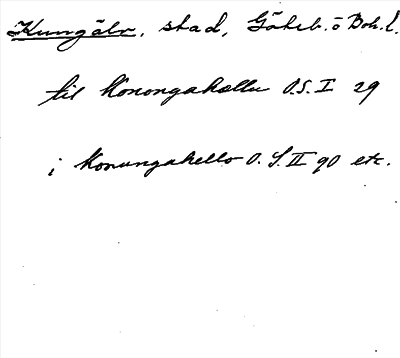 Kungälv, stad, Göteb. o Boh. l.
til Konongahællu O.S. I 29
i Konungahello O. S. II 90 etc.